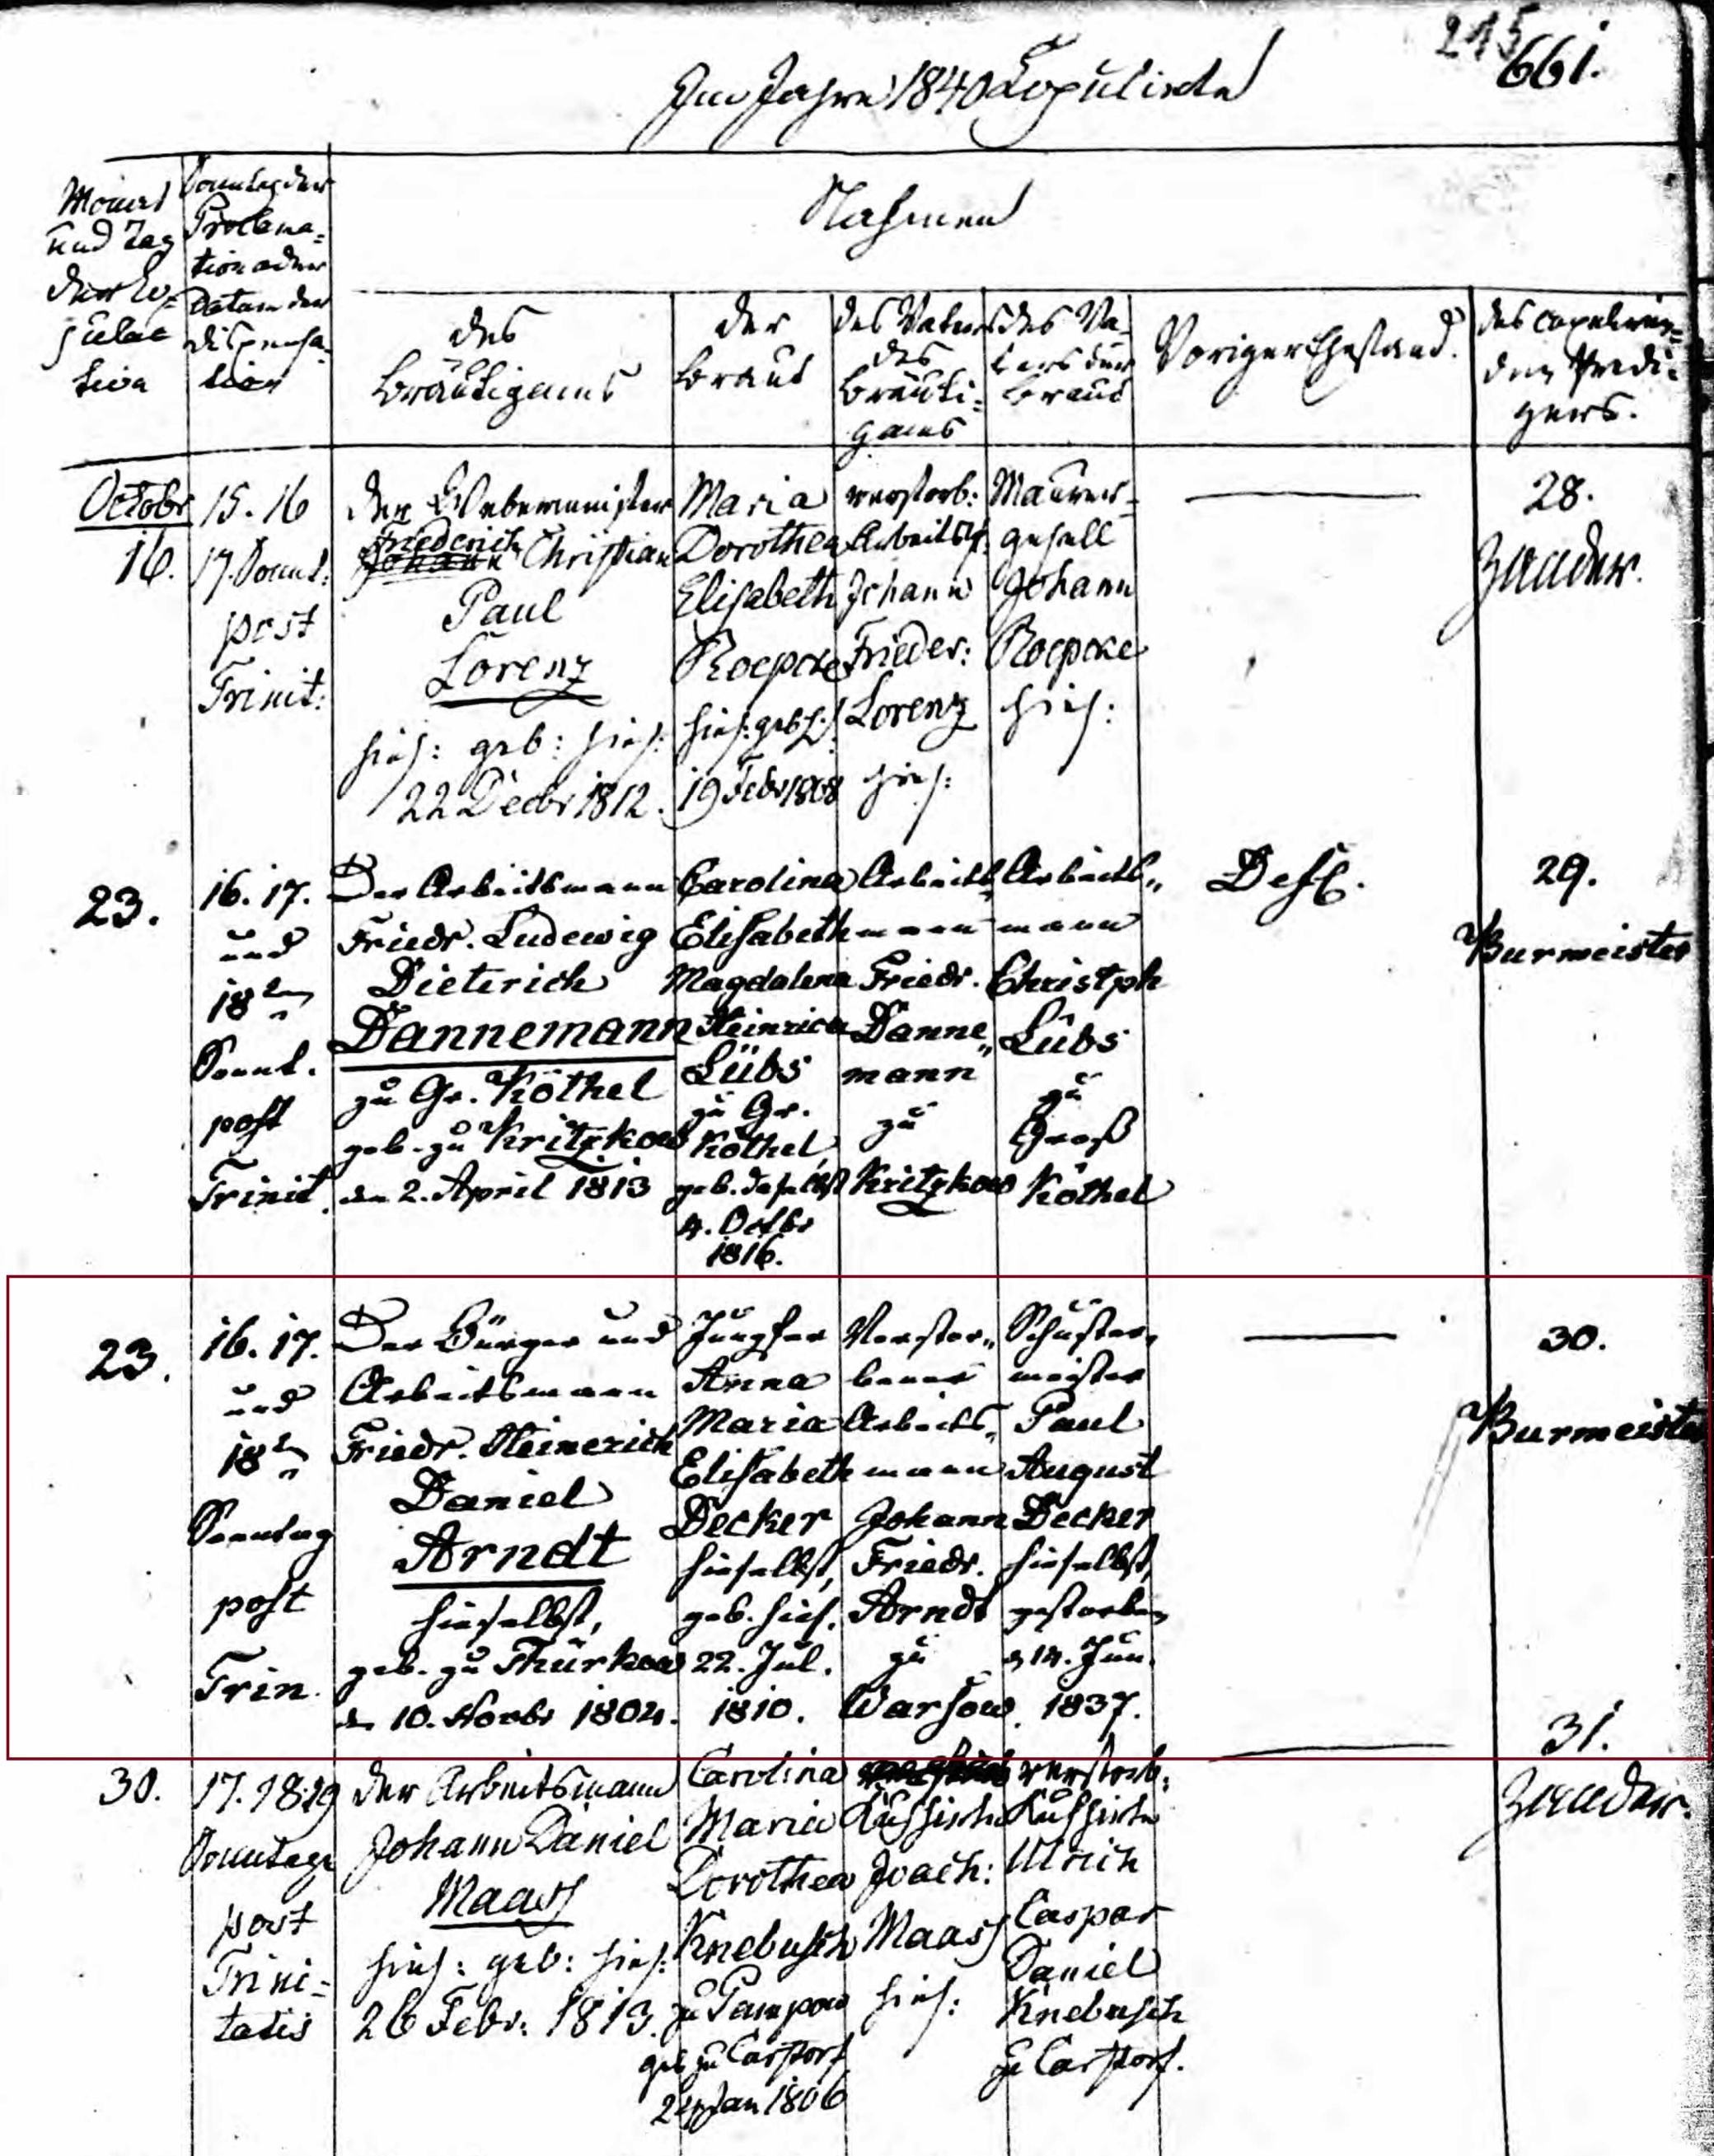 215
661.
Im Jahre 1840 Copulirte
Monat und Tag der Co=pulation
Sonntag der Proclama=tion oder Datum der Dispensa=tion
Nahmen
des Bräutigams
der Braut
des Vaters des Bräuti=gams
des Va=ters der Braut
Voriger Ehestand.
des copuliren=den Predi=gers.
Octobr
16.
15. 16
17. Sonnt:
post
Trinit:
Der Webermeister
Friederich Christian
Paul
Lorenz
hies: geb: hies:
22 Decbr 1812.
Maria
Dorothea
Elisabeth
Roepcke
hies: geb. h.
19 Febr 1808
verstorb:
Arbeitsm.
Johann
Frieder:
Lorenz
hies:
Maurer=
gesell
Johann
Roepcke
hies:
28.
Zander.
23.
16. 17.
und
18ten
Sonnt.
post
Trinit.
Der Arbeitsmann
Friedr. Ludewig
Dieterich
Dannemann
zu Gr. Köthel
geb. zu Kritzkow
den 2. April 1813
Carolina
Elisabeth
Magdalena
Heinrica
Lübs
zu Gr.
Köthel,
geb. daselbst
4. Octbr
1816.
Arbeits„
mann
Friedr.
Danne„
mann
zu
Kritzkow
Arbeits„
mann
Christph
Lübs
zu
Groß
Köthel
Desgl.
29.
Burmeister
23.
16. 17.
und
18ten
Sonntag
post
Trin.
Der Bürger und
Arbeitsmann
Friedr. Heinerich
Daniel
Arndt
hieselbst,
geb. zu Thürkow
den 10. Novbr 1804.
Jungfer
Anna
Maria
Elisabeth
Decker
hieselbst,
geb. hies.
22. Jul.
1810.
Verstor„
bener
Arbeits„
mann
Johann
Friedr.
Arndt
zu
Warsow.
Schuster„
meister
Paul
August
Decker
hieselbst,
gestorben
d 14. Jun.
1837.
30.
Burmeister
30.
17. 18. 19
Sonntage
post
Trini=
tatis
Der Arbeitsmann
Johann Daniel
Maass
hies: geb: hies:
26 Febr: 1813.
Carolina
Maria
Dorothea
Knebusch
zu Pampow
geb zu Carstorf
Jan 1806
Joach:
Maass
hies:
verstorb:
Ulrich
Caspar
Daniel
Knebusch
zu Carstorf.
31.
Zander.